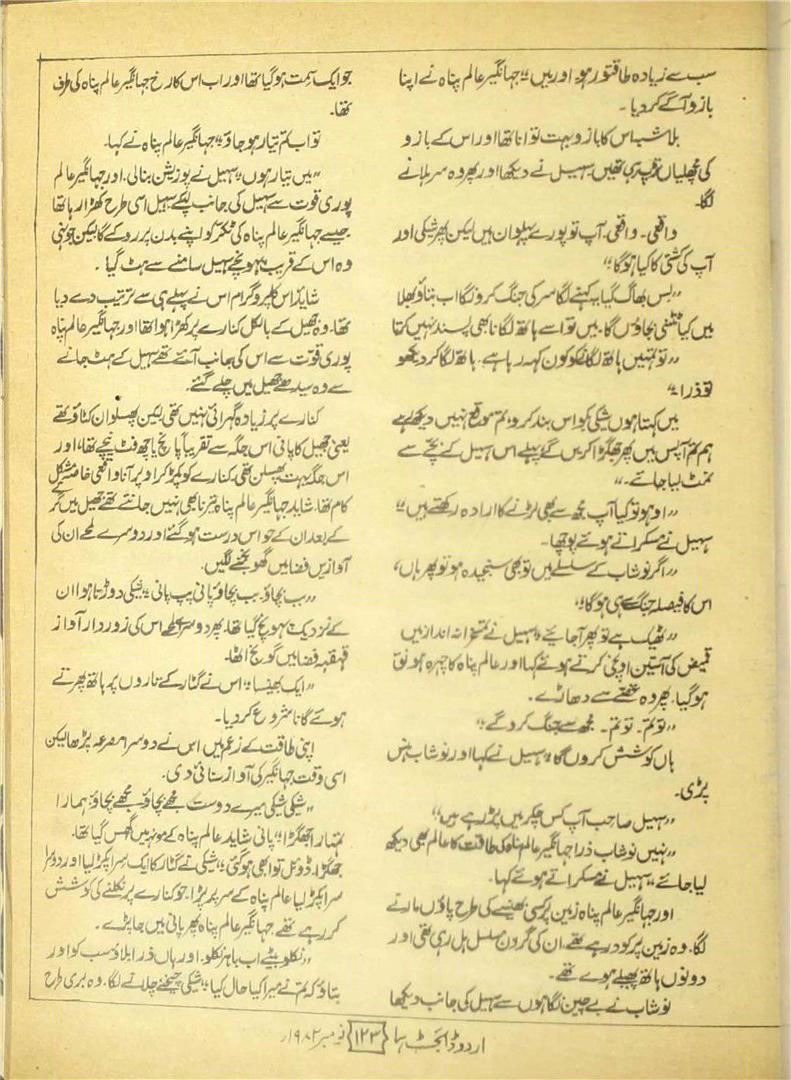 سب سے زیادہ طاقتور ہو اور میں“ جہانگیر عالم پناہ نے اپنا
بازو آگے کر دیا۔
بلا شبہ اس کا بازو بہت توانا تھا اور اس کے بازو
کی مچھلیاں تڑپ رہی تھیں سہیل نے دیکھا اور پھر وہ سر ہلانے
لگا۔
واقعی۔ واقعی۔ آپ تو پورے پہلوان ہیں لیکن پھر شیکی اور
آپ کی کشتی کا کیا ہوگا“
”بس بھاگ گیا۔ کہنے لگا سر کی جنگ کرو لگا اب بتاؤ بھلا
میں کیا بجاؤں گا۔ میں تو اسے ہاتھ لگانا بھی پسند نہیں کرتا
”تو تمہیں ہاتھ لگانے کو کون کہہ رہا ہے۔ ہاتھ لگا کر دیکھو
تو ذرا“
میں کہتا ہوں شیکی بکواس بند کرو۔ تم موقع نہیں دیکھتے
ہم تم آپس میں پھر جھگڑا کریں گے پہلے اس سہیل کے بچے سے
نمٹ لیا جائے۔“
”اوہو تو کیا آپ مجھ سے بھی لڑنے کا ارادہ رکھتے ہیں“
سہیل نے مسکراتے ہوئے پوچھا۔
”اگر نوشاب کے سلسلے میں تو بھی سنجیدہ ہو تو پھر ہاں،
اس کا فیصلہ جنگ سے ہی ہوگا“
”ٹھیک ہے تو پھر آجائیے“ سہیل نے تمسخرانہ انداز میں
قمیض کی آستین اونچی کرتے ہوئے کہا اور عالم پناہ کا چہرہ ہونق
ہوگیا۔ پھر وہ غصے سے دھاڑے۔
”تو تم۔ تو تم۔ مجھ سے جنگ کرو گے“
ہاں کوشش کروں گا“ سہیل نے کہا اور نوشاب ہنس
پڑی۔
”سہیل صاحب آپ کس چکر میں پڑ رہے ہیں“
”نہیں نوشاب ذرا جہانگیر عالم پناہ کی طاقت کا عالم بھی دیکھ
لیا جائے“ سہیل نے مسکراتے ہوئے کہا۔
اور جہانگیر عالم پناہ زمین پر کسی بھینسے کی طرح پاؤں مارنے
لگا۔ وہ زمین پر کود رہے تھے۔ ان کی گردن مسلسل ہل رہی تھی اور
دونوں ہاتھ پھیلے ہوے تھے۔
نوشاب نے بے چین نگاہوں سے سہیل کی جانب دیکھا
جو ایک سمت ہوگیا تھا اور اب اس کا رخ جہانگیر عالم پناہ کی طرف
تھا۔
تو اب تم تیار ہو جاؤ“ جہانگیر عالم پناہ نے کہا۔
”میں تیار ہوں“ سہیل نے پوزیشن بنالی۔ اور جہانگیر عالم
پوری قوت سے سہیل کی جانب لپکے سہیل اسی طرح کھڑا رہا تھا
جیسے جہانگیر عالم پناہ کی ٹکر کو اپنے بدن پر روکے گا لیکن جونہی
وہ اس کے قریب پہونچے سہیل سامنے سے ہٹ گیا۔
شاید اس کا پروگرام اس نے پہلے ہی سے ترتیب دے دیا
تھا۔ وہ جھیل کے بالکل کنارے پر کھڑا ہوا تھا اور جہانگیر عالم پناہ
پوری قوت سے اس کی جانب آئے تھے سہیل کے ہٹ جانے
سے وہ سیدھے جھیل میں چلے گئے۔
کنارے پر زیادہ گہرائی نہیں تھی لیکن پھسلوان کٹاؤ تھے
یعنی جھیل کا پانی اس جگہ سے تقریباً پانچ یا چھ فٹ نیچے تھا، اور
اس جگہ بہت پھسلن تھی کنارے کو پکڑ کر اوپر آنا واقعی خاصہ مشکل
کام تھا۔ شاید جہانگیر عالم پناہ تیرنا بھی نہیں جانتے تھے جھیل میں گر
کے بعد ان کے حواس درست ہوگئے اور دوسرے لمحے ان کی
آوازیں فضا میں گھونجنے لگیں۔
”ب بچاؤ۔ ب بچاؤ پانی پپ پانی“ شیکی دوڑتا ہوا ان
کے نزدیک پہونچ گیا تھا۔ پھر دوسرے لمحے اس کی زوردار آواز
قہقہہ فضا میں گونج اٹھا۔
”ایک بھینسا“ اس نے گٹار کے تاروں پر ہاتھ پھیرتے
ہوئے گانا شروع کر دیا۔
اپنی طاقت کے زعم میں اس نے دوسرا مصرعہ پڑھا لیکن
اسی وقت جہانگیر کی آواز سنائی دی۔
”شیکی شیکی میرے دوست مجھے بچاؤ۔ مجھے بچاؤ۔ ہمارا
تمہارا جھگڑا“ پانی شاید عالم پناہ کے مونہہ میں گھس گیا تھا۔
جھگڑا۔ ڈوئل تو ابھی ہوگئی“ شیکی نے گٹار کا ایک سرا پکڑ لیا اور دوسرا
سرا پکڑ لیا عالم پناہ کے سر پر پڑا۔ جو کنارے پر نکلنے کی کوشش
کر رہے تھے۔ جہانگیر عالم پناہ پھر پانی میں جا پڑے۔
”نکلو بیٹے اب باہر نکلو۔ اور ہاں ذرا بلاؤ سب کو اور
بتاؤ کہ تم نے میرا کیا حال کیا“ شیکی چیخنے چلانے لگا۔ وہ بری طرح
اردو ڈائجسٹ ہما {۱۲۳} نومبر ۱۹۸۲ء